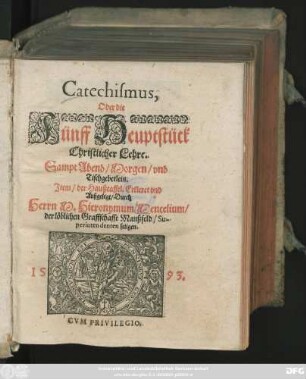 Catechismus,
Oder die
Fünff Heuptstück
Christlicher Lehre.
Sampt Abend/ Morgen/ vnd
Tischgebetlein.
Item/ der Haußtaffel, Erkleret vnd
Außgelegt/ Durch
Herrn M. Hieronymum Mencelium/
der löblichen Graffschafft Manßfeld/ Su-
perintendenten seligen.
1595.
CVM PRIVILEGIO.